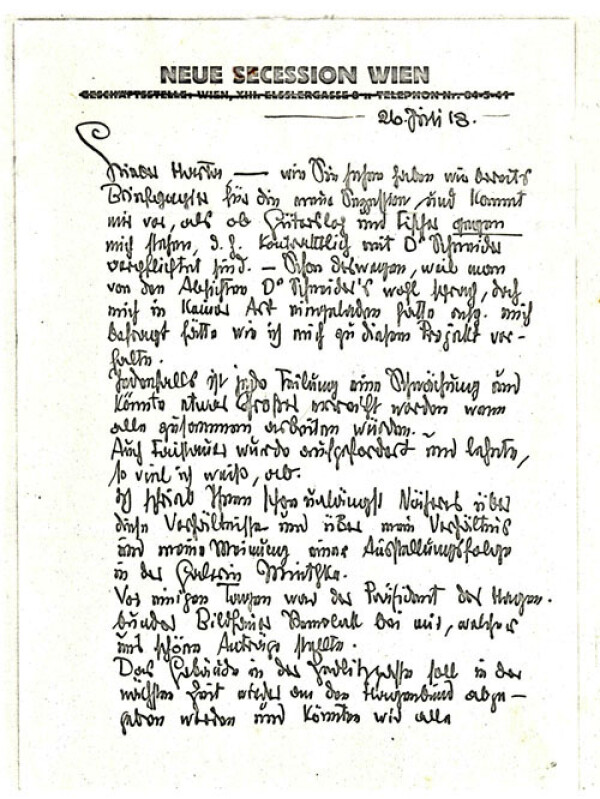 NEUE SECESSION WIEN
GESCHÄFTSSTELLE: WIEN, XIII. ELSSLERGASSE 8 TELEPHON Nr. 84-5-41
26. Juli 18.
Lieber — wie Sie sehen haben wir bereits
Briefpapier für die neue Sezession, und kommt
mir vor, als ob Gütersloh und Fischer gegen
mich stehen, d. h. kontraktlich mit Dr Schneider
verpflichtet sind. — Schon deswegen, weil man
von den Absichten Dr Schneider's wohl sprach, doch
mich in keiner Art eingeladen hätte resp. mich
befragt hätte wie ich mich zu diesem Projekt ver-
halte.
Jedenfalls ist jede Teilung eine Schwächung und
könnte etwas Großes erreicht werden wenn
alle zusammen arbeiten würden. —
Auch Faistauer wurde aufgefordert und lehnte,
so viel ich weiß, ab.
Ich schrieb Ihnen schon unlängst Näheres über
diese Verhältnisse und über mein Verhältnis
und meine Meinung einer Ausstellungsfolge
in der Galerie Miethke.
Vor einigen Tagen war der Präsident des Hagen-
bundes Bildhauer bei mir, welcher
uns schöne Anträge stellte.
Das Gebäude in der Zedlitzgasse soll in der
nächsten Zeit wieder an den Hagenbund abge-
geben werden und könnten wir alle